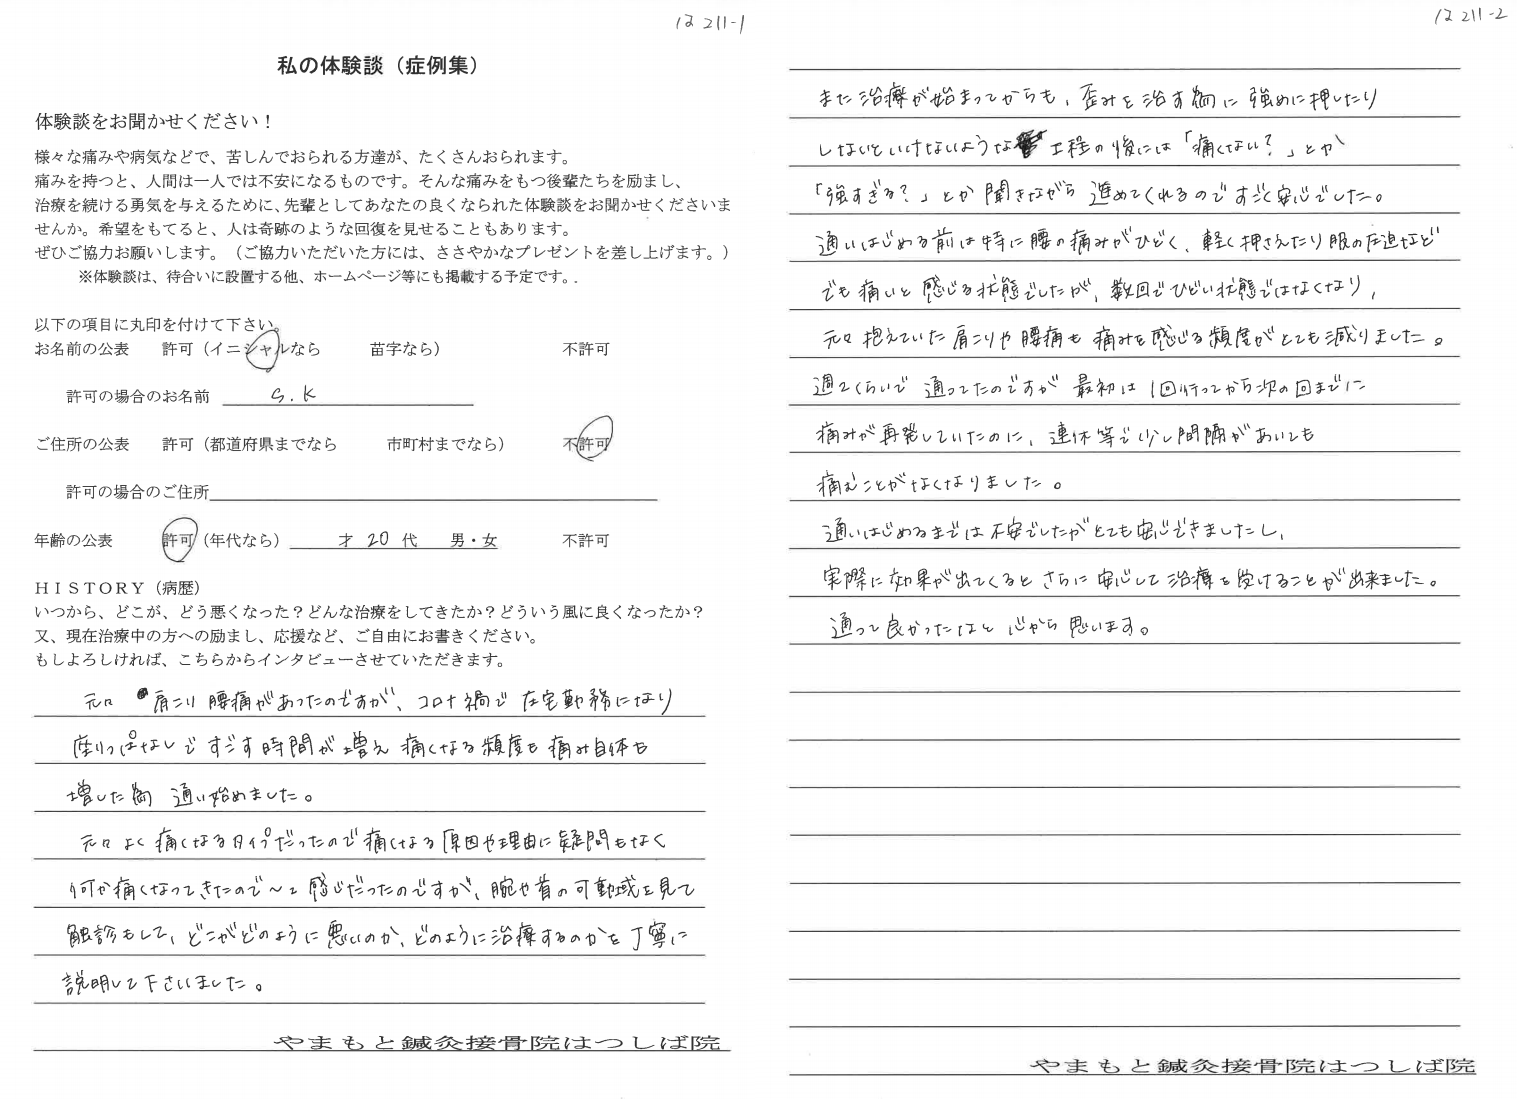 は211-1
私の体験談（症例集）
体験談をお聞かせください！
様々な痛みや病気などで、苦しんでおられる方達が、たくさんおられます。
痛みを持つと、人間は一人では不安になるものです。そんな痛みをもつ後輩たちを励まし、
治療を続ける勇気を与えるために、先輩としてあなたの良くなられた体験談をお聞かせくださいま
せんか。希望をもてると、人は奇跡のような回復を見せることもあります。
ぜひご協力お願いします。（ご協力いただいた方には、ささやかなプレゼントを差し上げます。）
※体験談は、待合いに設置する他、ホームページ等にも掲載する予定です。.
以下の項目に丸印を付けて下さい。
お名前の公表 許可（イニシャルなら 苗字なら） 不許可
許可の場合のお名前 S.K
ご住所の公表 許可（都道府県までなら 市町村までなら） 不許可
許可の場合のご住所
年齢の公表 許可（年代なら） 才 20 代 男・女 不許可
ＨＩＳＴＯＲＹ（病歴）
いつから、どこが、どう悪くなった？どんな治療をしてきたか？どういう風に良くなったか？
又、現在治療中の方への励まし、応援など、ご自由にお書きください。
もしよろしければ、こちらからインタビューさせていただきます。
元々 肩こり 腰痛があったのですが、コロナ禍で 在宅勤務になり
座りっぱなしで すごす時間が増え 痛くなる頻度も 痛み自体も
増した為 通い始めました。
元々 よく 痛くなるタイプだったので 痛くなる 原因や理由に疑問もなく
何か痛くなってきたので〜と 感じだったのですが、腕や首の可動域を見て
触診もして、どこがどのように悪いのか、どのように治療するのかを丁寧に
説明して下さいました。
やまもと鍼灸接骨院はつしば院
は211-2
また治療が始まってからも、歪みを治す為に 強めに押したり
しないといけないような 工程の後には「痛くない？」とか
「強すぎる？」とか 聞きながら 進めてくれるのですごく安心でした。
通いはじめる前は特に腰の痛みがひどく、軽く押さえたり服の圧迫など
でも痛いと 感じる状態でしたが、数回でひどい状態ではなくなり、
元々抱えていた肩こりや腰痛も痛みを感じる頻度がとても減りました。
週2くらいで 通ってたのですが 最初は 1回行ってから次の回までに
痛みが再発していたのに、連休等で少し間隔があいても
痛むことがなくなりました。
通いはじめるまでは不安でしたがとても安心できましたし、
実際に効果が出てくると さらに 安心して 治療を受けることが出来ました。
通って良かったなと 心から思います。
やまもと鍼灸接骨院はつしば院